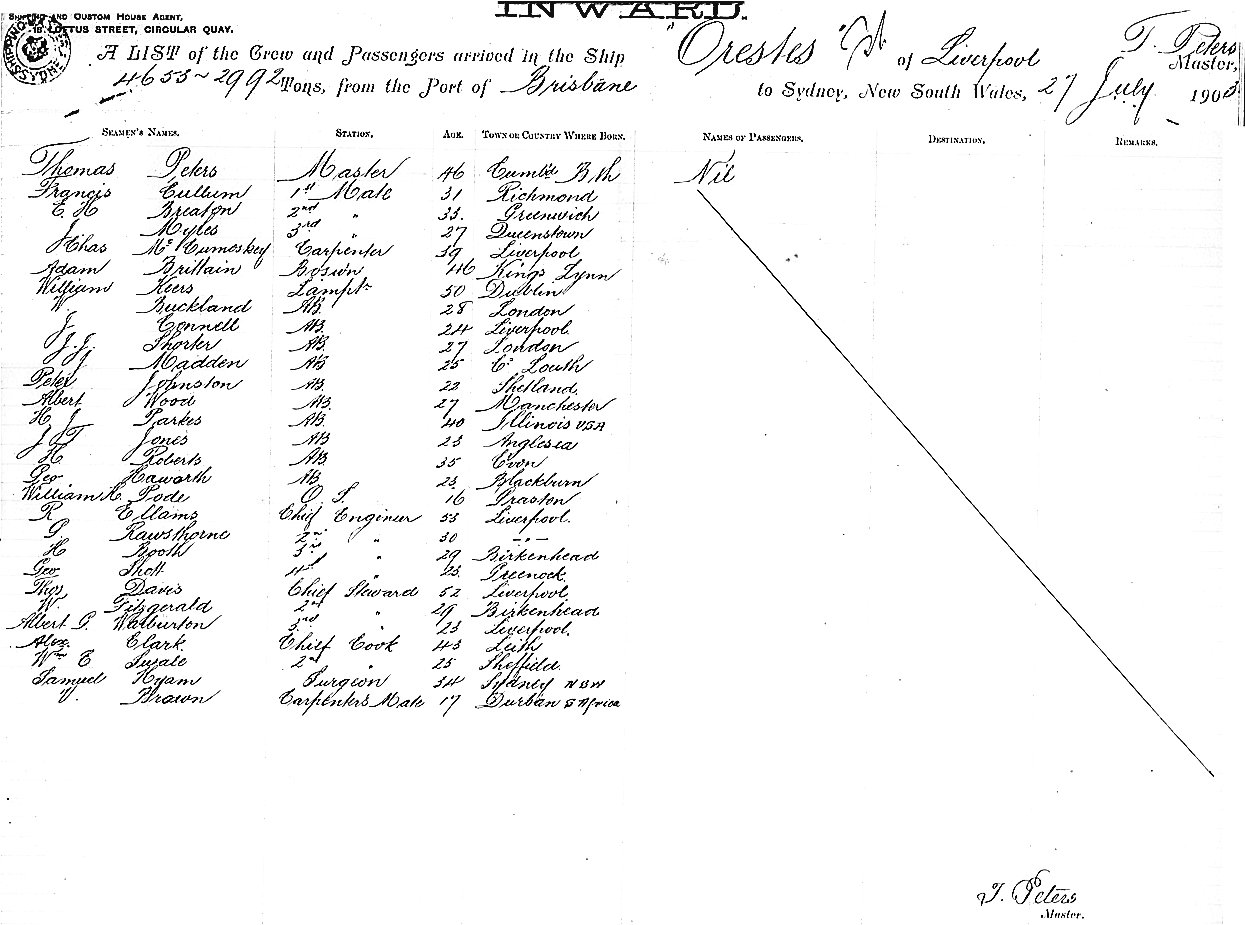 INWARD.
SHIPPING AND CUSTOM HOUSE AGENT,
LOFTUS STREET, CIRCULAR QUAY.
A LIST of the Crew and Passengers arrived in the Ship "Orestes" of Liverpool T. Peters Master,
4653 ~ 2992 Tons, from the Port of Brisbane to Sydney, New South Wales, 27 July 1903
SEAMEN'S NAMES. STATION, AGE. TOWN OR COUNTRY WHERE BORN. NAMES OF PASSENGERS, DESTINATION, REMARKS.
Thomas Peters Master 46 Cumb'd Bth Nil
Francis Cullum 1st Mate 31 Richmond
C. H Breaton 2nd " 33. Greenwich
J Myles 3rd " 27 Queenstown
Chas Mc Cumoskey Carpenter 39 Liverpool
Adam Brittain Bosun 46 Kings Lynn
William Keers Lamptr 50 Dublin
W. Buckland AB. 28 London
J. Connell AB. 24 Liverpool
J.J. Shorter AB. 27 London
J Madden AB 25 Co Louth
Peter Johnston AB. 22 Shetland.
Albert Wood AB. 27 Manchester
H J Parkes AB. 40 Illinois USA
J T Jones AB 23 Anglesea
H. Roberts AB. 35
Geo Haworth AB 23. Blackburn
William H. Pode O S. 16 Praston
R Ellams Chief Engineer 53 Liverpool.
G. Rawsthorne 2nd " 30 - " -
H Booth 3rd " 29 Birkenhead
Geo Shott 4th " 23. Greenock
Thos Davis Chief Steward 52 Liverpool
W. Fitzgerald 2nd " 29 Birkenhead
Albert G. Warburton 3rd " 23 Liverpool.
Alex. Clark. Chief Cook 43 Leith
Wm E Swale 2nd " 25 Sheffield.
Samuel Hyam Surgeon 34 Sydney NSW
V. Brown Carpenters Mate 17 Durban S Africa
T. Peters
Master.